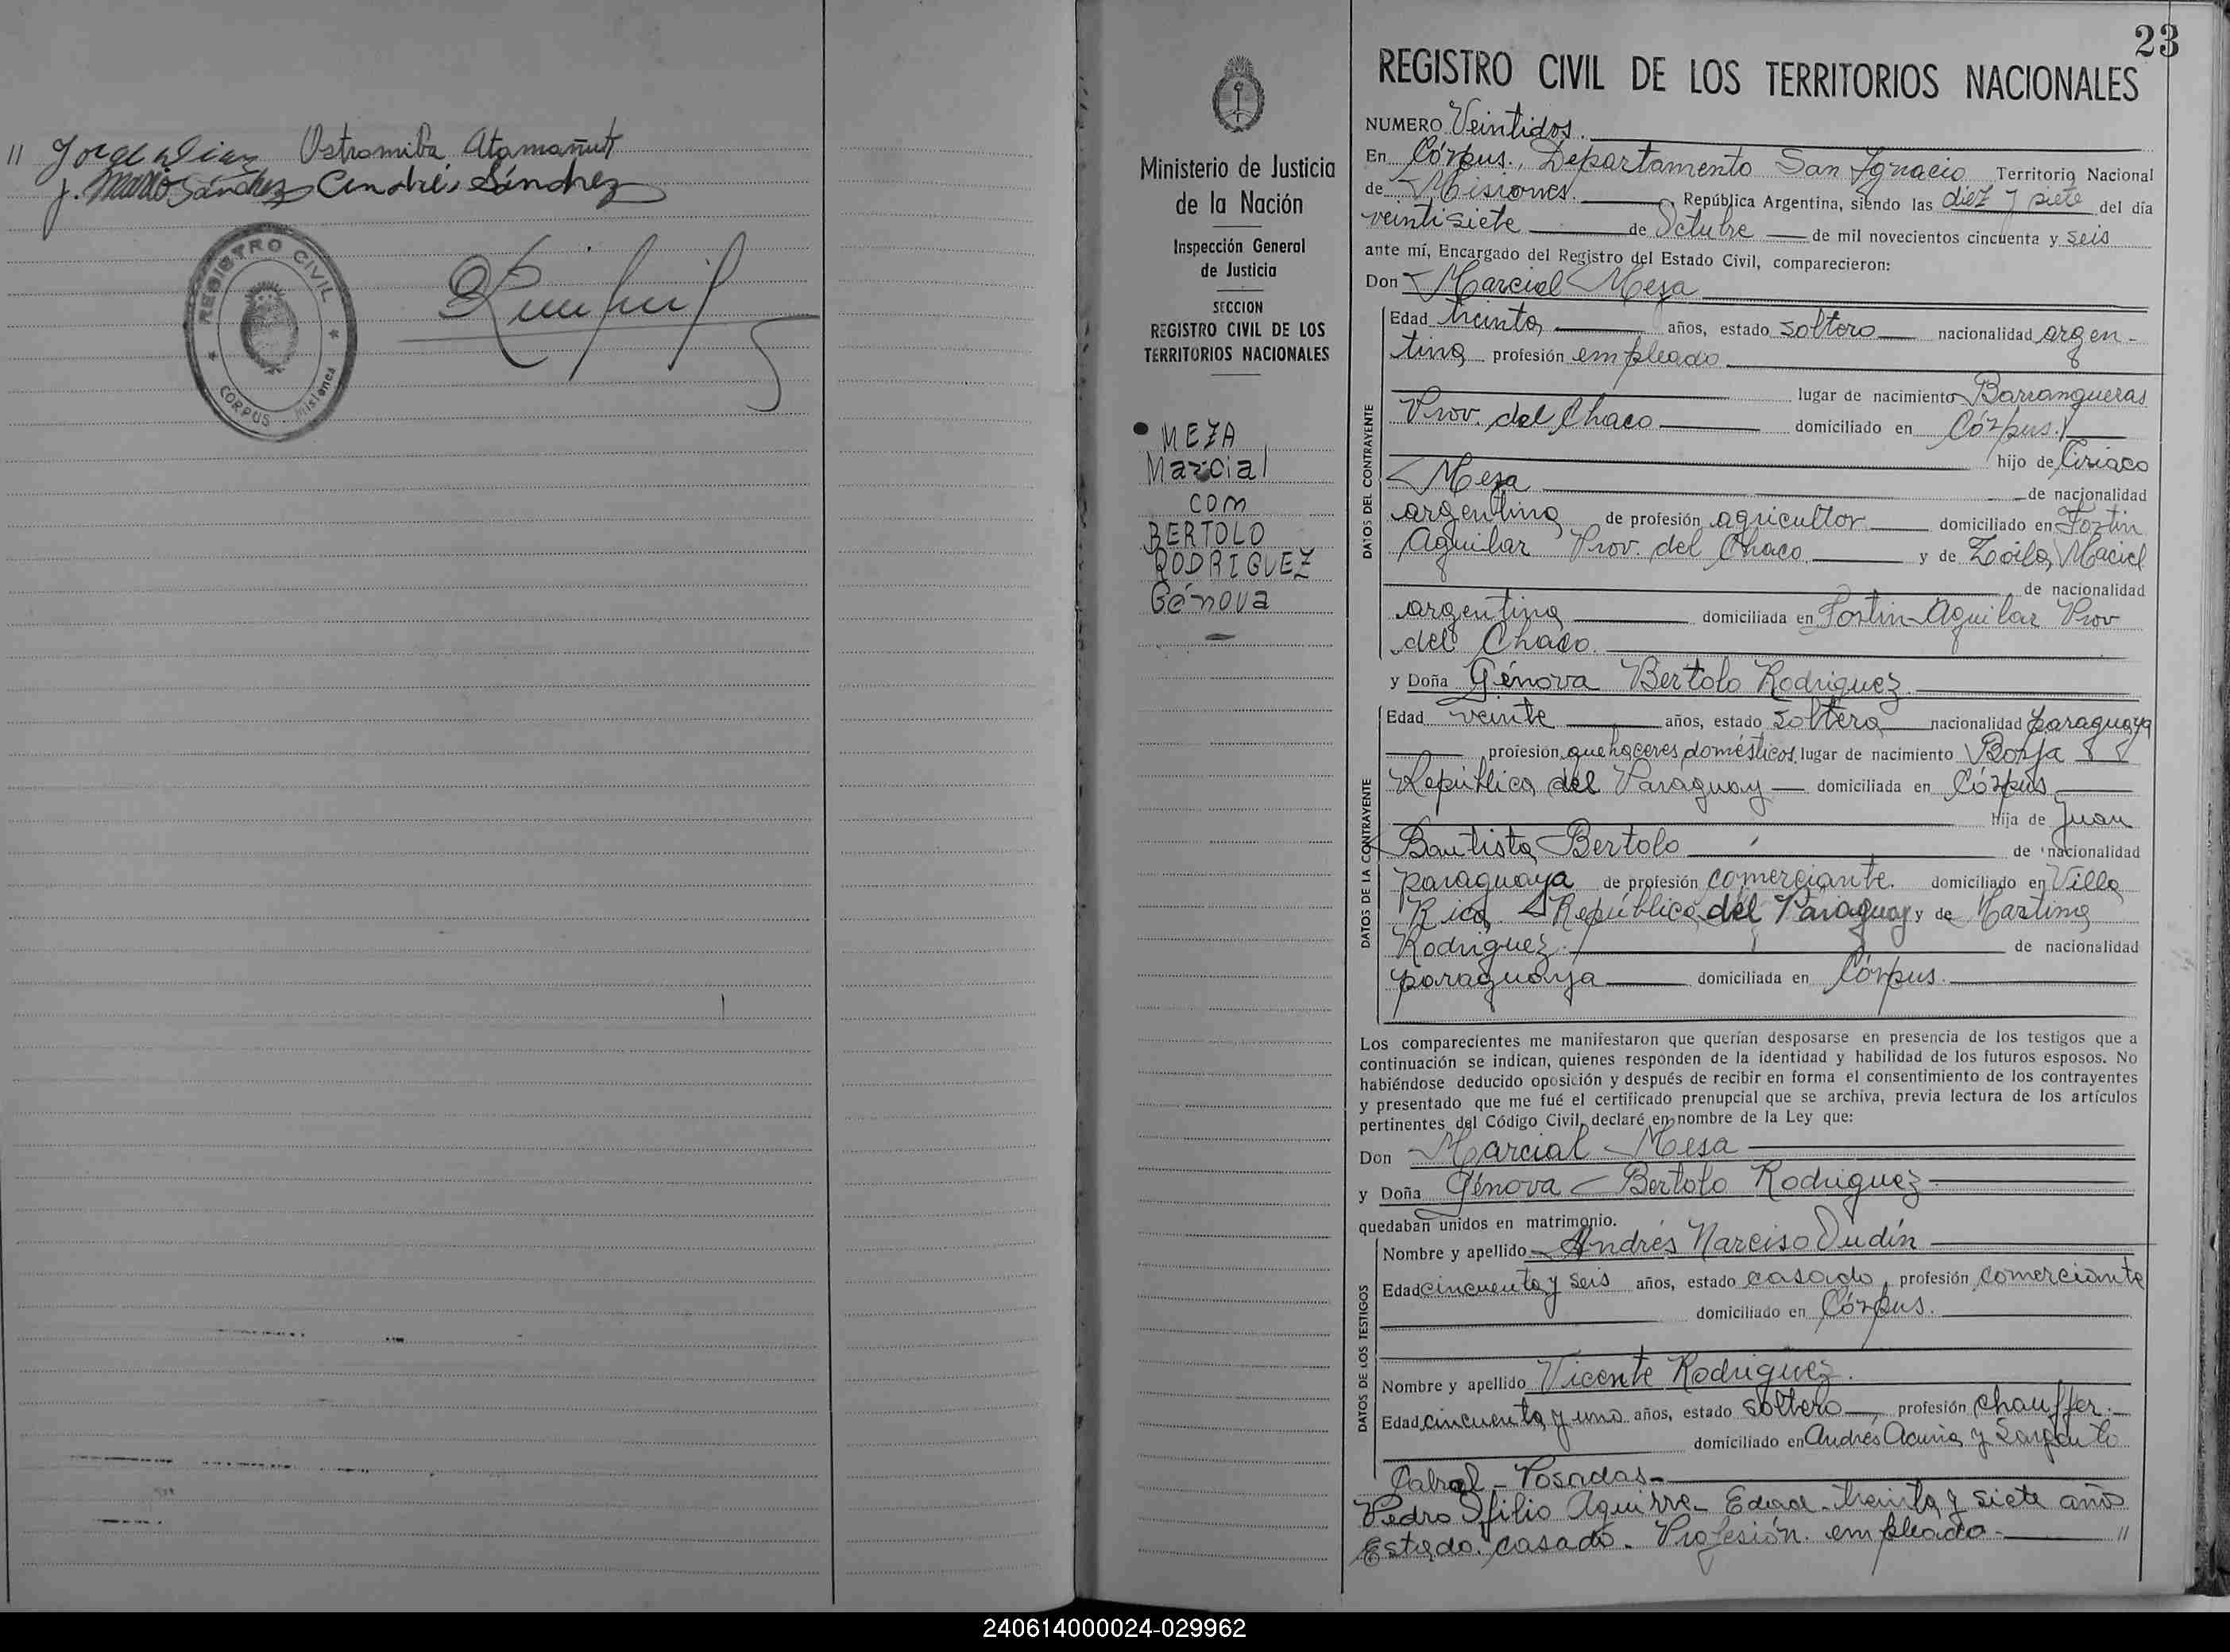 " Jorge Diaz Ostromiba Atamañuk
J. Mario Sánchez Andrés Sánchez
REGISTRO CIVIL
CORPUS Misiones
Ministerio de Justicia
de la Nación
Inspección General
de Justicia
SECCION
REGISTRO CIVIL DE LOS
TERRITORIOS NACIONALES
MEZA
Marcial
com
BERTOLO
RODRIGUEZ
Génova
23
REGISTRO CIVIL DE LOS TERRITORIOS NACIONALES
NUMERO Veintidos.
En Córpus., Departamento San Ignacio Territorio Nacional
de Misiones. República Argentina, siendo las diez y siete del día
veintisiete de Octubre de mil novecientos cincuenta y seis
ante mí, Encargado del Registro del Estado Civil, comparecieron:
Don Marcial Mesa
DATOS DEL CONTRAYENTE
Edad treinta años, estado soltero nacionalidad argen-
tina profesión empleado
lugar de nacimiento Barranqueras
Prov. del Chaco domiciliado en Córpus.
hijo de Ciriaco
Mesa de nacionalidad
argentina de profesión agricultor domiciliado en Fortin
Aguilar Prov. del Chaco y de Zoila Maciel
de nacionalidad
argentina domiciliada en Fortin Aguilar Prov
del Chaco.
y Doña Génova Bertolo Rodriguez.
DATOS DE LA CONTRAYENTE
Edad veinte años, estado soltera nacionalidad paraguaya
profesión quehaceres domésticos lugar de nacimiento Borja
República del Paraguay domiciliada en Córpus
Hija de Juan
Bautista Bertolo de nacionalidad
paraguaya de profesión comerciante. domiciliado en Villa
Rica República del Paraguay y de Martina
Rodriguez. de nacionalidad
paraguaya domiciliada en Córpus.
Los comparecientes me manifestaron que querían desposarse en presencia de los testigos que a
continuación se indican, quienes responden de la identidad y habilidad de los futuros esposos. No
habiéndose deducido oposición y después de recibir en forma el consentimiento de los contrayentes
y presentado que me fué el certificado prenupcial que se archiva, previa lectura de los artículos
pertinentes del Código Civil, declaré en nombre de la Ley que:
Don Marcial Mesa
y Doña Génova Bertolo Rodriguez
quedaban unidos en matrimonio.
DATOS DE LOS TESTIGOS
Nombre y apellido Andrés Narciso Dudín
Edad cincuenta y seis años, estado casado, profesión comerciante
domiciliado en Córpus.
Nombre y apellido Vicente Rodriguez.
Edad cincuenta y uno años, estado soltero profesión chauffer.-
domiciliado en Andrés Acuña y Sargento
Cabral - Posadas-
Pedro Ofilio Aguirre- Edad- treinta y siete años
Estado. casado. Profesión. empleado- "
240614000024-029962